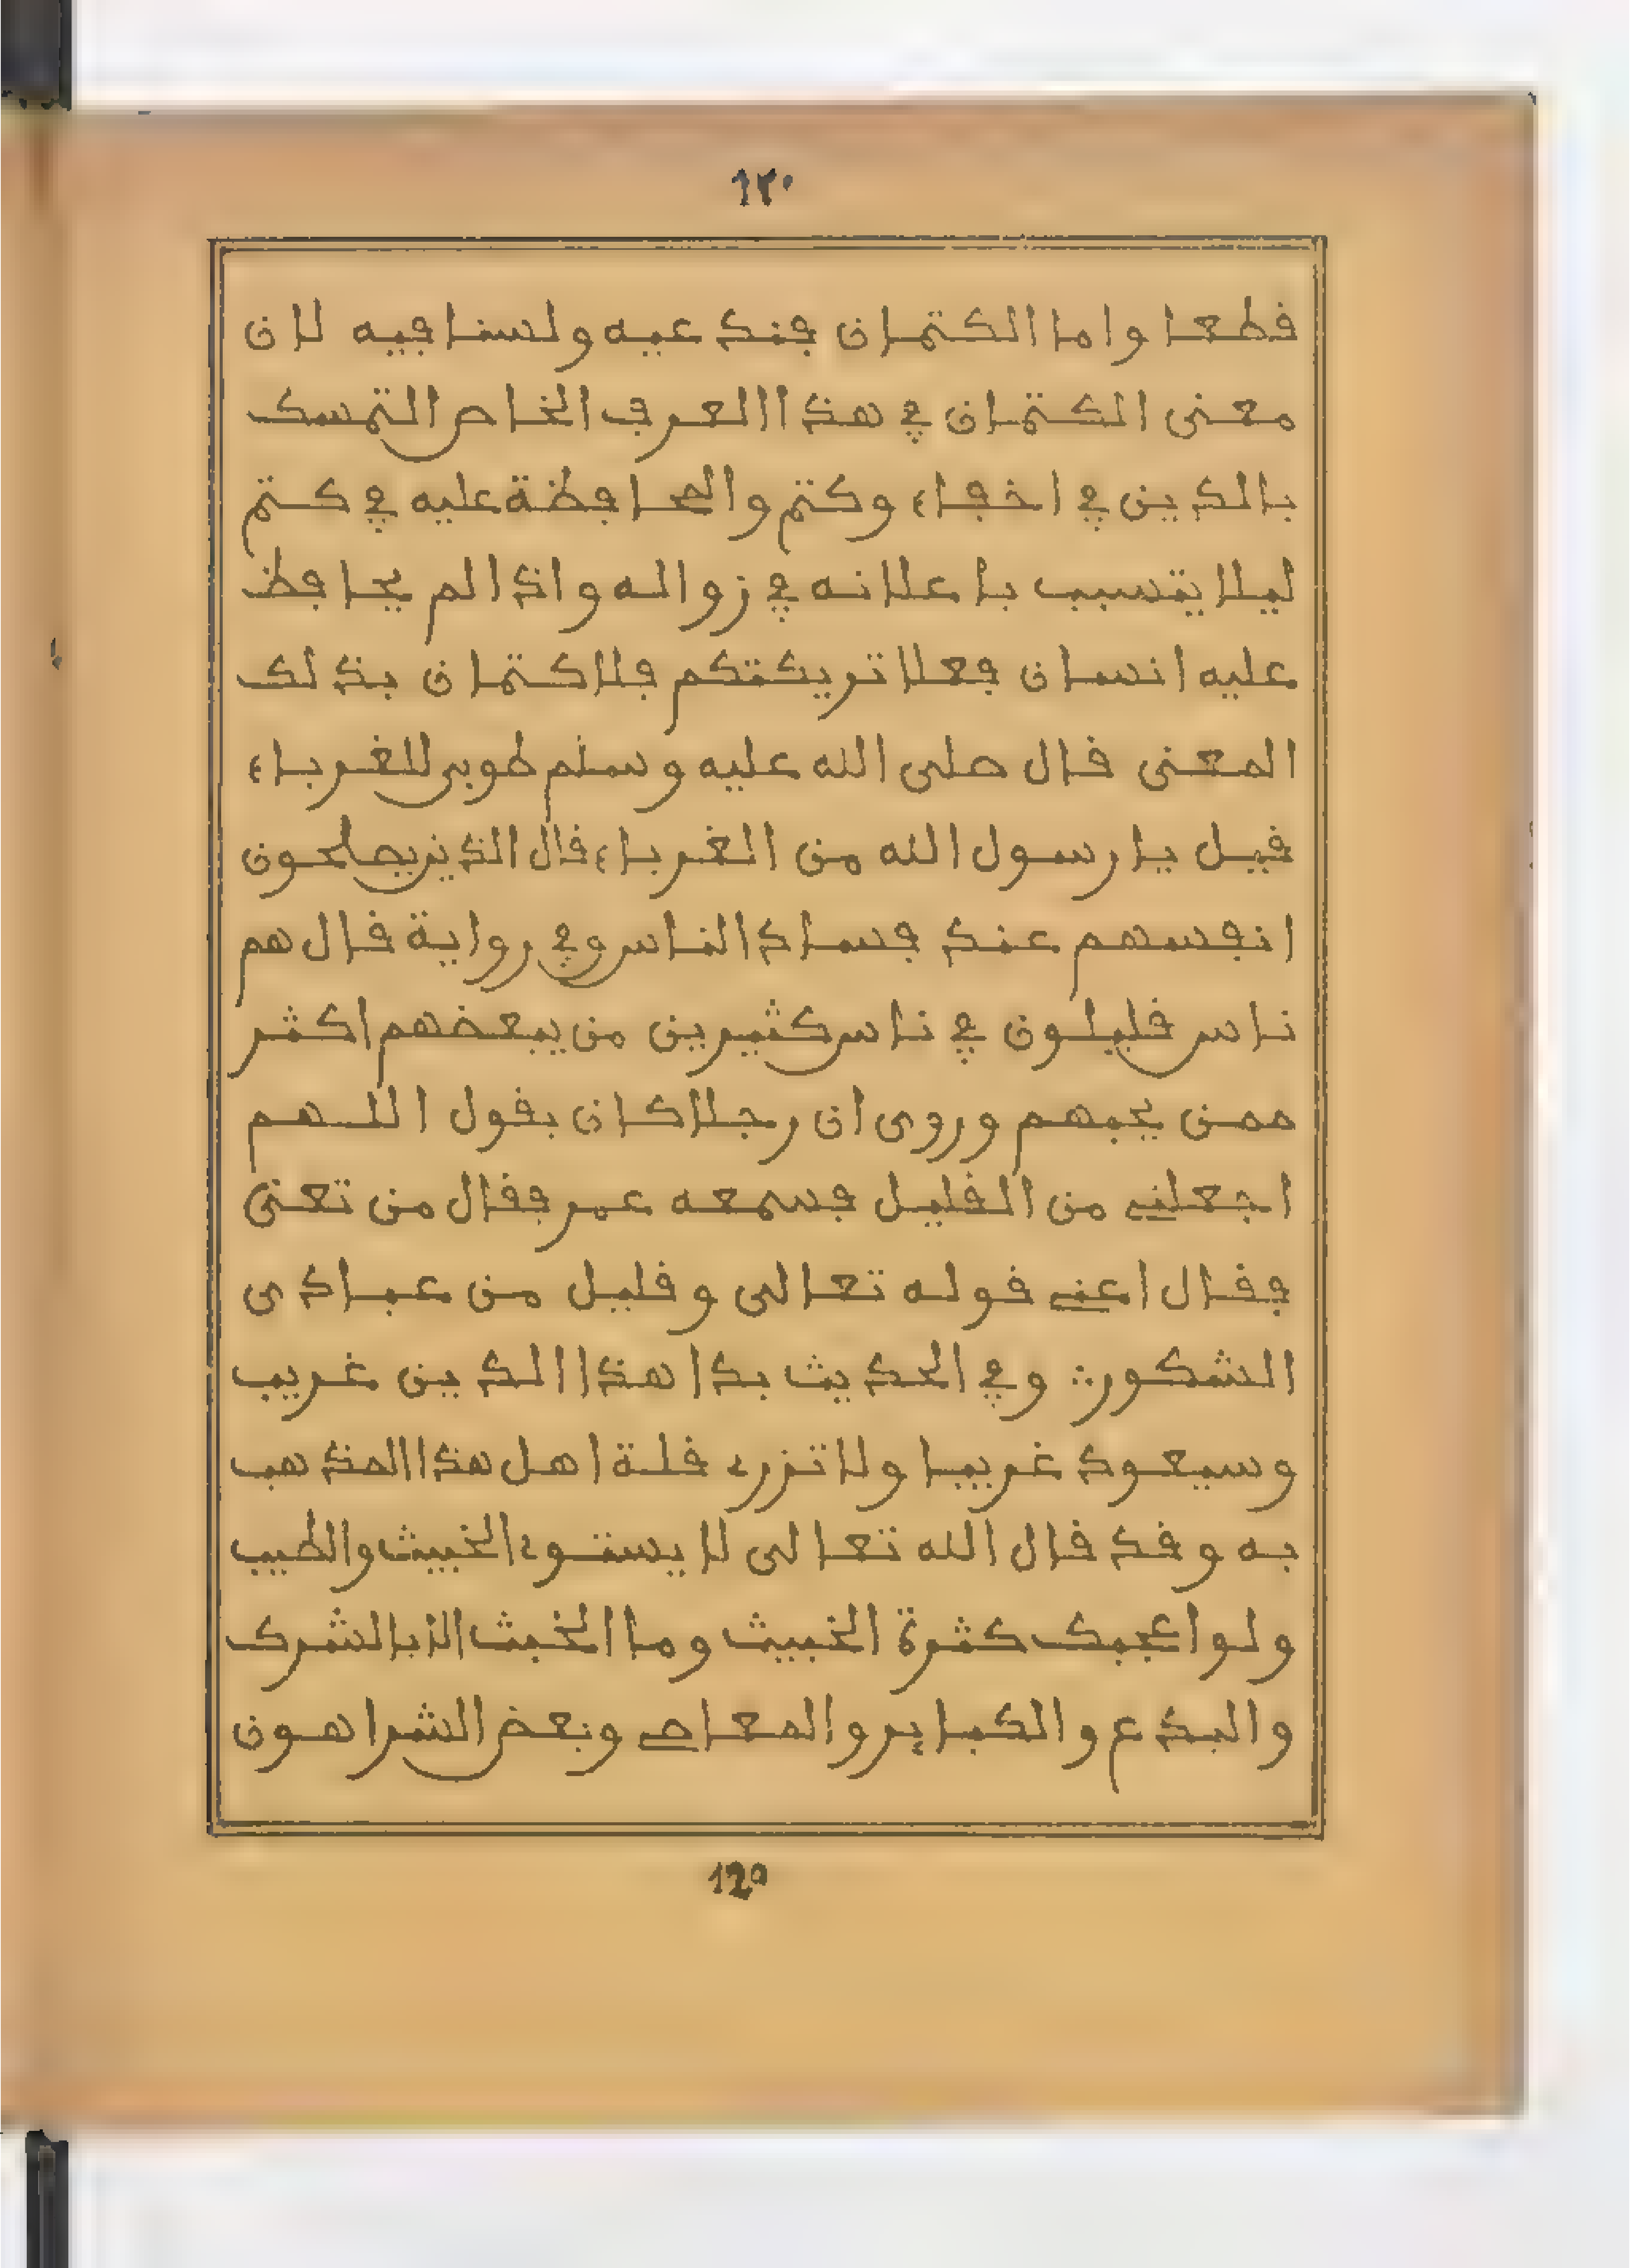 ١٢٠
قطعا واما الكتمان فندعيه ولسنا فيه لان
معنى الكتمان في هذا العرف الخاص التمسك
بالدين في اخفاء وكتم والمحافظة عليه في كتم
ليلا يتسبب باعلانه في زواله واذا لم يحافظ
عليه انسان فعلا تريكتكم فلا كتمان بذلك
المعنى قال صلى الله عليه وسلم طوبى للغرباء
قيل يا رسول الله من الغرباء قال الذين يصلحون
انفسهم عند فساد الناس وفي رواية قال هم
ناس قليلون في ناس كثيرين من يبغضهم اكثر
ممن يحبهم وروى ان رجلا كان يقول اللهم
اجعلنى من القليل فسمعه عمر فقال من تعنى
فقال اعنى قوله تعالى وقليل من عبادى
الشكور وفي الحديث بدا هذا الدين غريب
وسيعود غريبا ولا تزر قلة اهل هذا المذهب
به وقد قال الله تعالى لا يستوى الخبيث والطيب
ولو اعجبك كثرة الخبيث وما الخبث الا بالشرك
والبدع والكباير والمعاصى وبعض الشر اهون
120